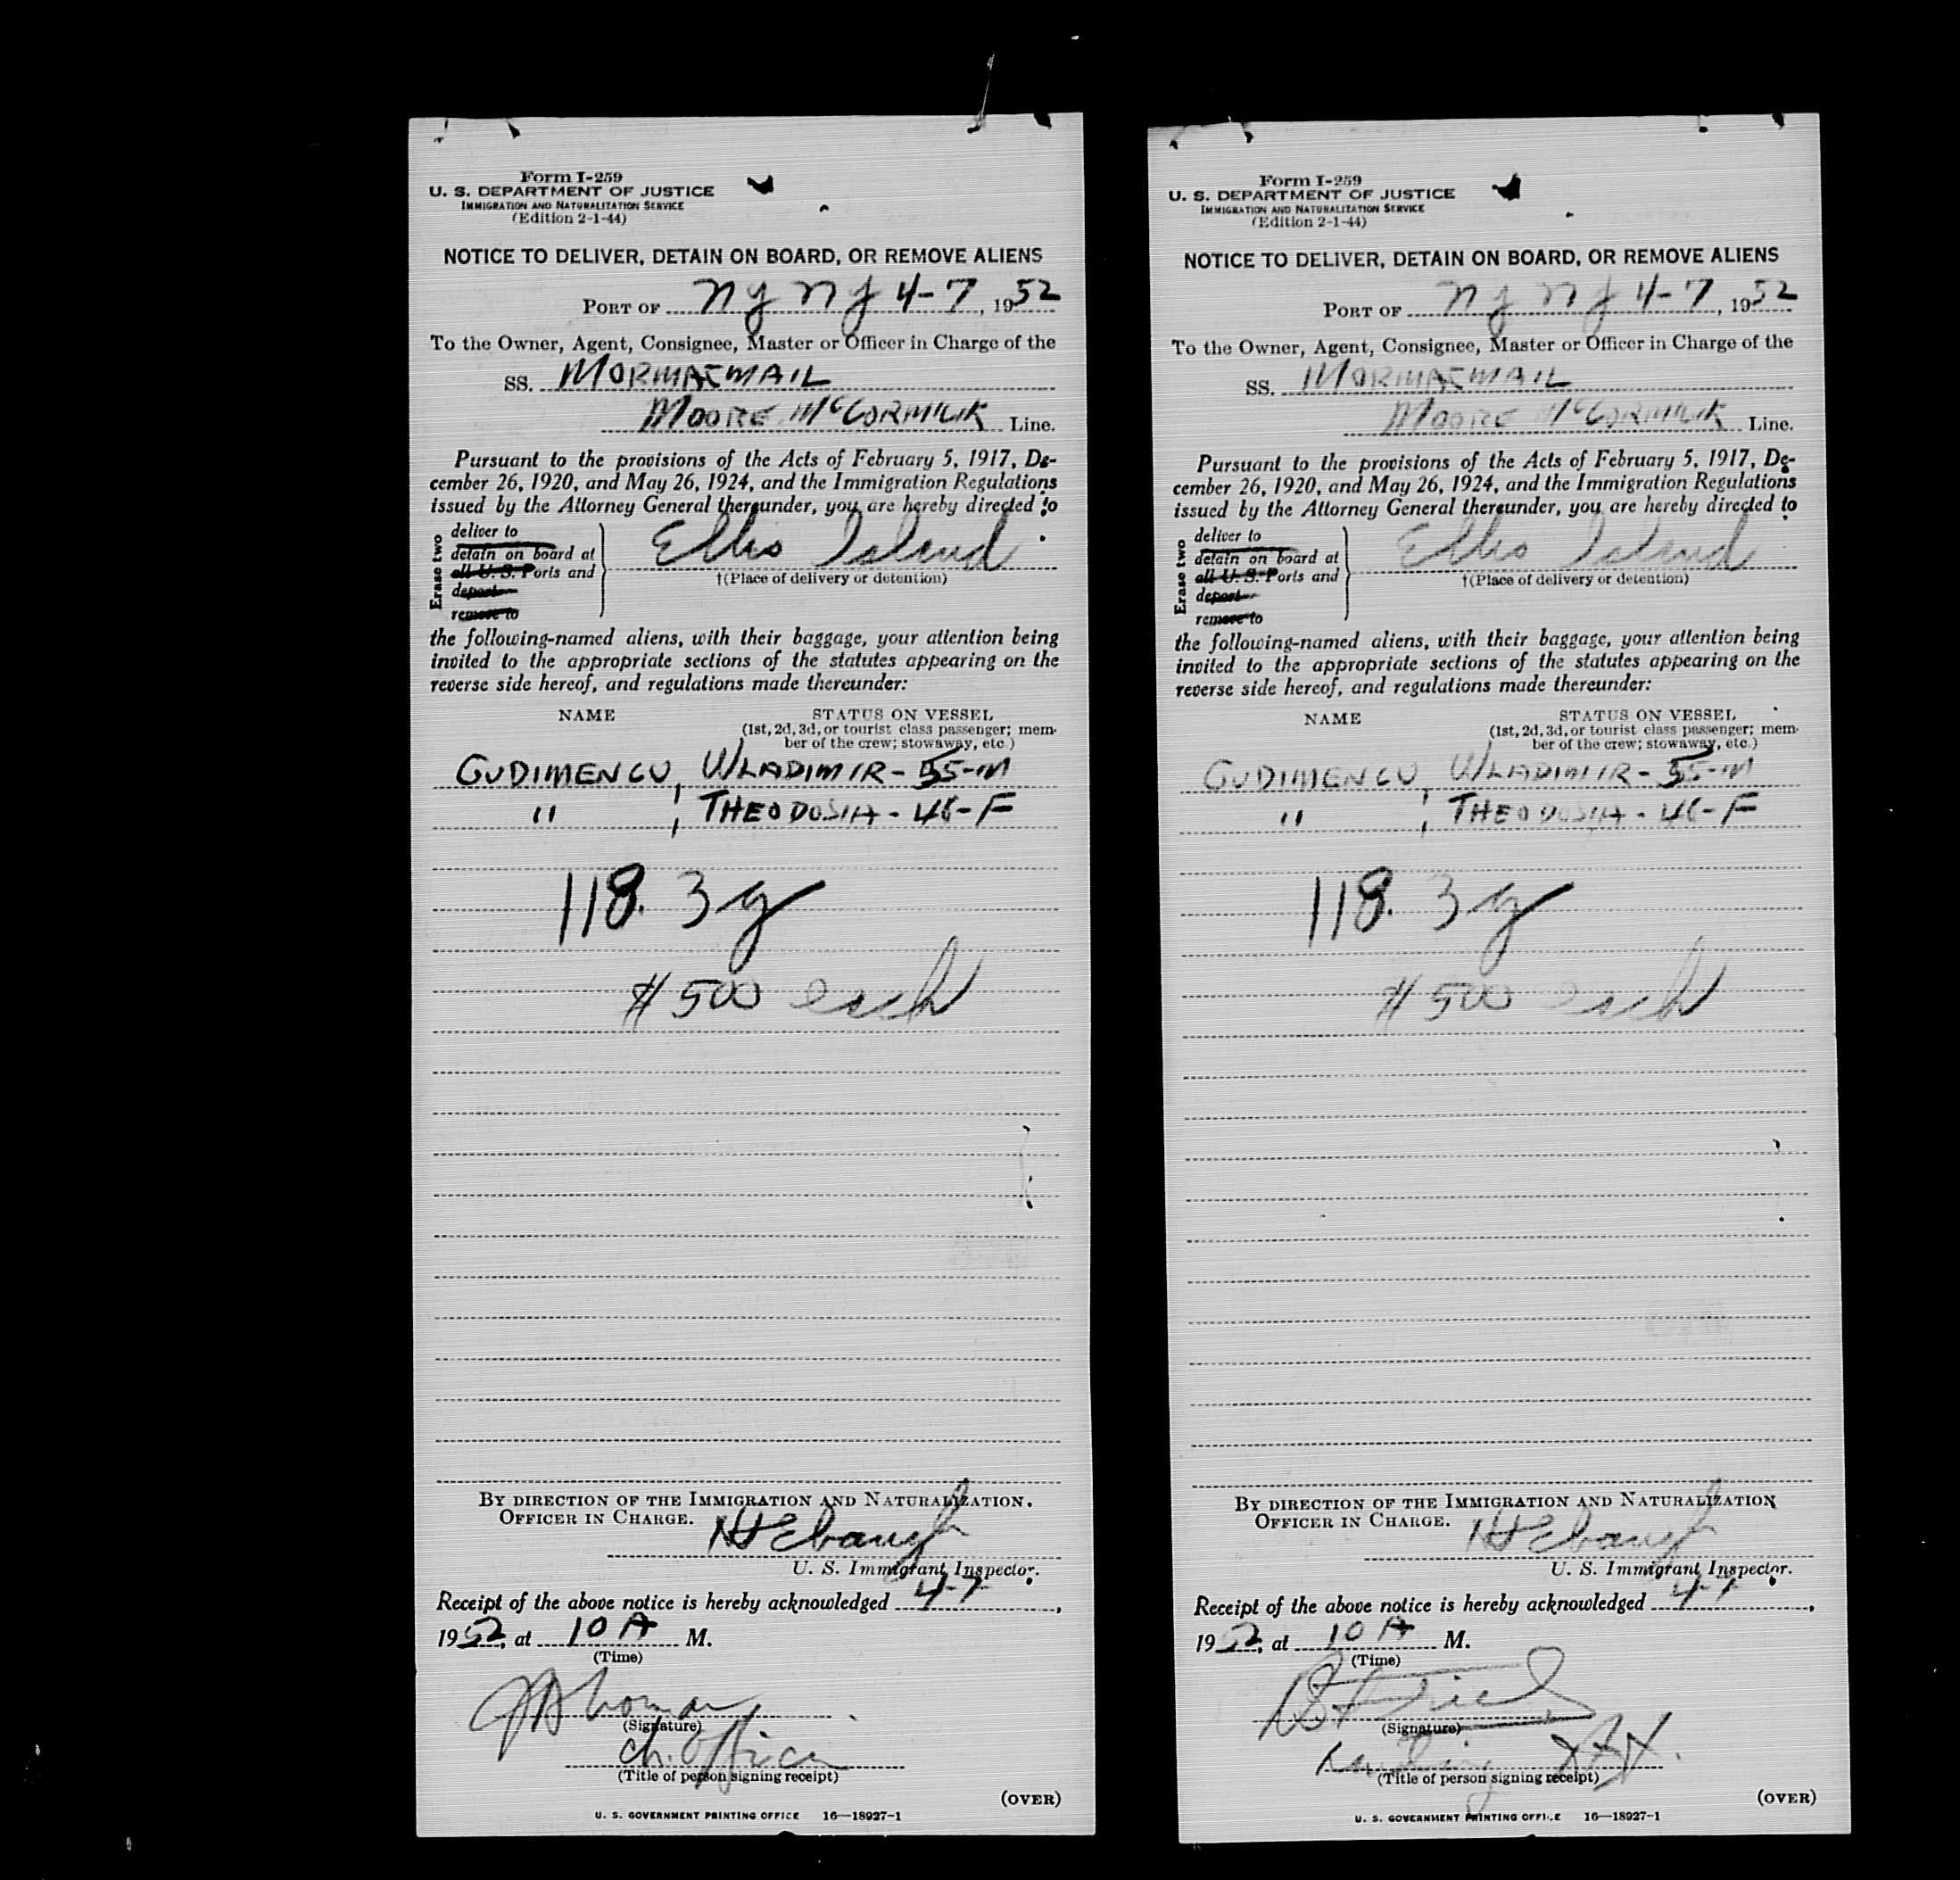 Form I-259
U. S. DEPARTMENT OF JUSTICE
IMMIGRATION AND NATURALIZATION SERVICE
(Edition 2-1-44)
NOTICE TO DELIVER, DETAIN ON BOARD, OR REMOVE ALIENS
PORT OF NY NY 4-7, 1952
To the Owner, Agent, Consignee, Master or Officer in Charge of the
SS. MORMACMAIL
MOORE McCORMICK Line.
Pursuant to the provisions of the Acts of February 5, 1917, De-
cember 26, 1920, and May 26, 1924, and the Immigration Regulations
issued by the Attorney General thereunder, you are hereby directed to
Erase two
deliver to
detain on board at
all U. S. Ports and
deport
remove to
Ellis Island
†(Place of delivery or detention)
the following-named aliens, with their baggage, your attention being
invited to the appropriate sections of the statutes appearing on the
reverse side hereof, and regulations made thereunder:
NAME STATUS ON VESSEL
(1st, 2d, 3d, or tourist class passenger; mem-
ber of the crew; stowaway, etc.)
GUDIMENCU, WLADIMIR - 55-M
" , THEODOSIA - 46-F
118. 3 g
$500 each
BY DIRECTION OF THE IMMIGRATION AND NATURALIZATION.
OFFICER IN CHARGE.
Ebaugh
U. S. Immigrant Inspector.
Receipt of the above notice is hereby acknowledged 4-7,
1952, at 10 A M.
(Time)
(Signature)
Ch. Officer
(Title of person signing receipt)
(OVER)
U. S. GOVERNMENT PRINTING OFFICE 16—18927-1
Form I-259
U. S. DEPARTMENT OF JUSTICE
IMMIGRATION AND NATURALIZATION SERVICE
(Edition 2-1-44)
NOTICE TO DELIVER, DETAIN ON BOARD, OR REMOVE ALIENS
PORT OF NY NY 4-7, 1952
To the Owner, Agent, Consignee, Master or Officer in Charge of the
SS. MORMACMAIL
MOORE McCORMICK Line.
Pursuant to the provisions of the Acts of February 5, 1917, De-
cember 26, 1920, and May 26, 1924, and the Immigration Regulations
issued by the Attorney General thereunder, you are hereby directed to
Erase two
deliver to
detain on board at
all U. S. Ports and
deport
remove to
Ellis Island
†(Place of delivery or detention)
the following-named aliens, with their baggage, your attention being
invited to the appropriate sections of the statutes appearing on the
reverse side hereof, and regulations made thereunder:
NAME STATUS ON VESSEL
(1st, 2d, 3d, or tourist class passenger; mem-
ber of the crew; stowaway, etc.)
GUDIMENCU, WLADIMIR - 55-M
" , THEODOSIA - 46-F
118. 3 g
$500 each
BY DIRECTION OF THE IMMIGRATION AND NATURALIZATION
OFFICER IN CHARGE.
Ebaugh
U. S. Immigrant Inspector.
Receipt of the above notice is hereby acknowledged 4-7,
1952, at 10 A M.
(Time)
(Signature)
(Title of person signing receipt)
(OVER)
U. S. GOVERNMENT PRINTING OFFICE 16—18927-1